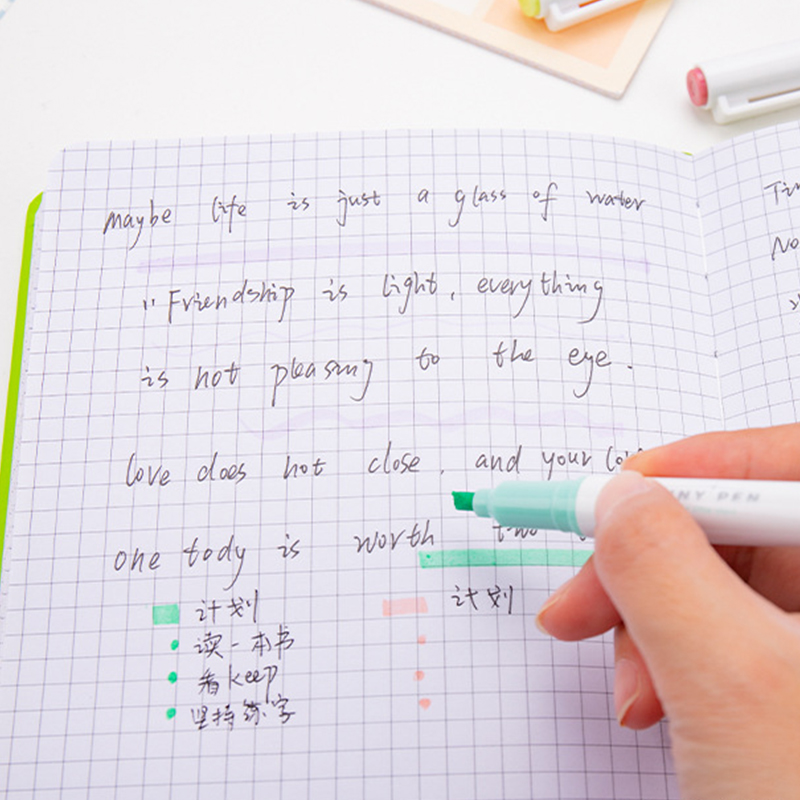 maybe life is just a glass of water
"Friendship is light, everything
is not pleasing to the eye.
love does not close, and your
one tody is worth two
计划
读一本书
看keep
坚持练字
计划
NY PEN